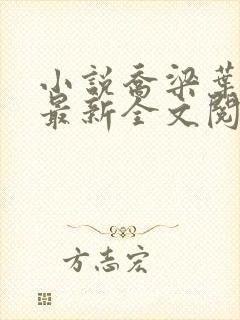 小说乔梁葉
最新全文閱
方志宏